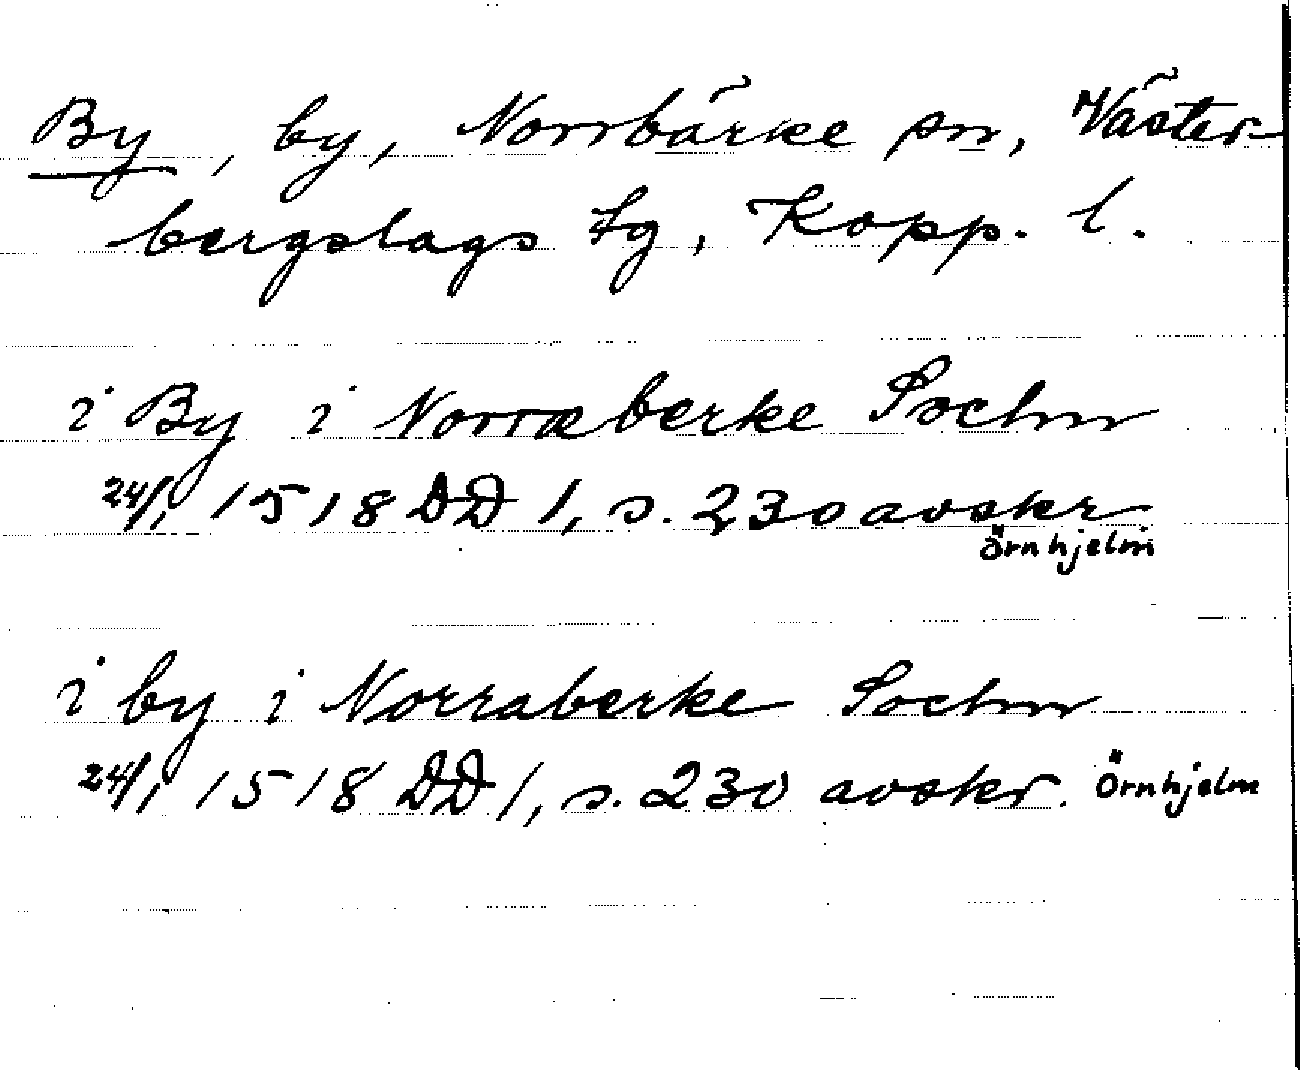 By, by, Norrbärke sn, Väster-
bergslags tg, Kopp. l.
i By i Norræberke Sochn
24/1 1518 DD 1, s. 230 avskr
Örnhjelm
i by i Norraberke Sochn
24/1 1518 DD 1, s. 230 avskr. Örnhjelm